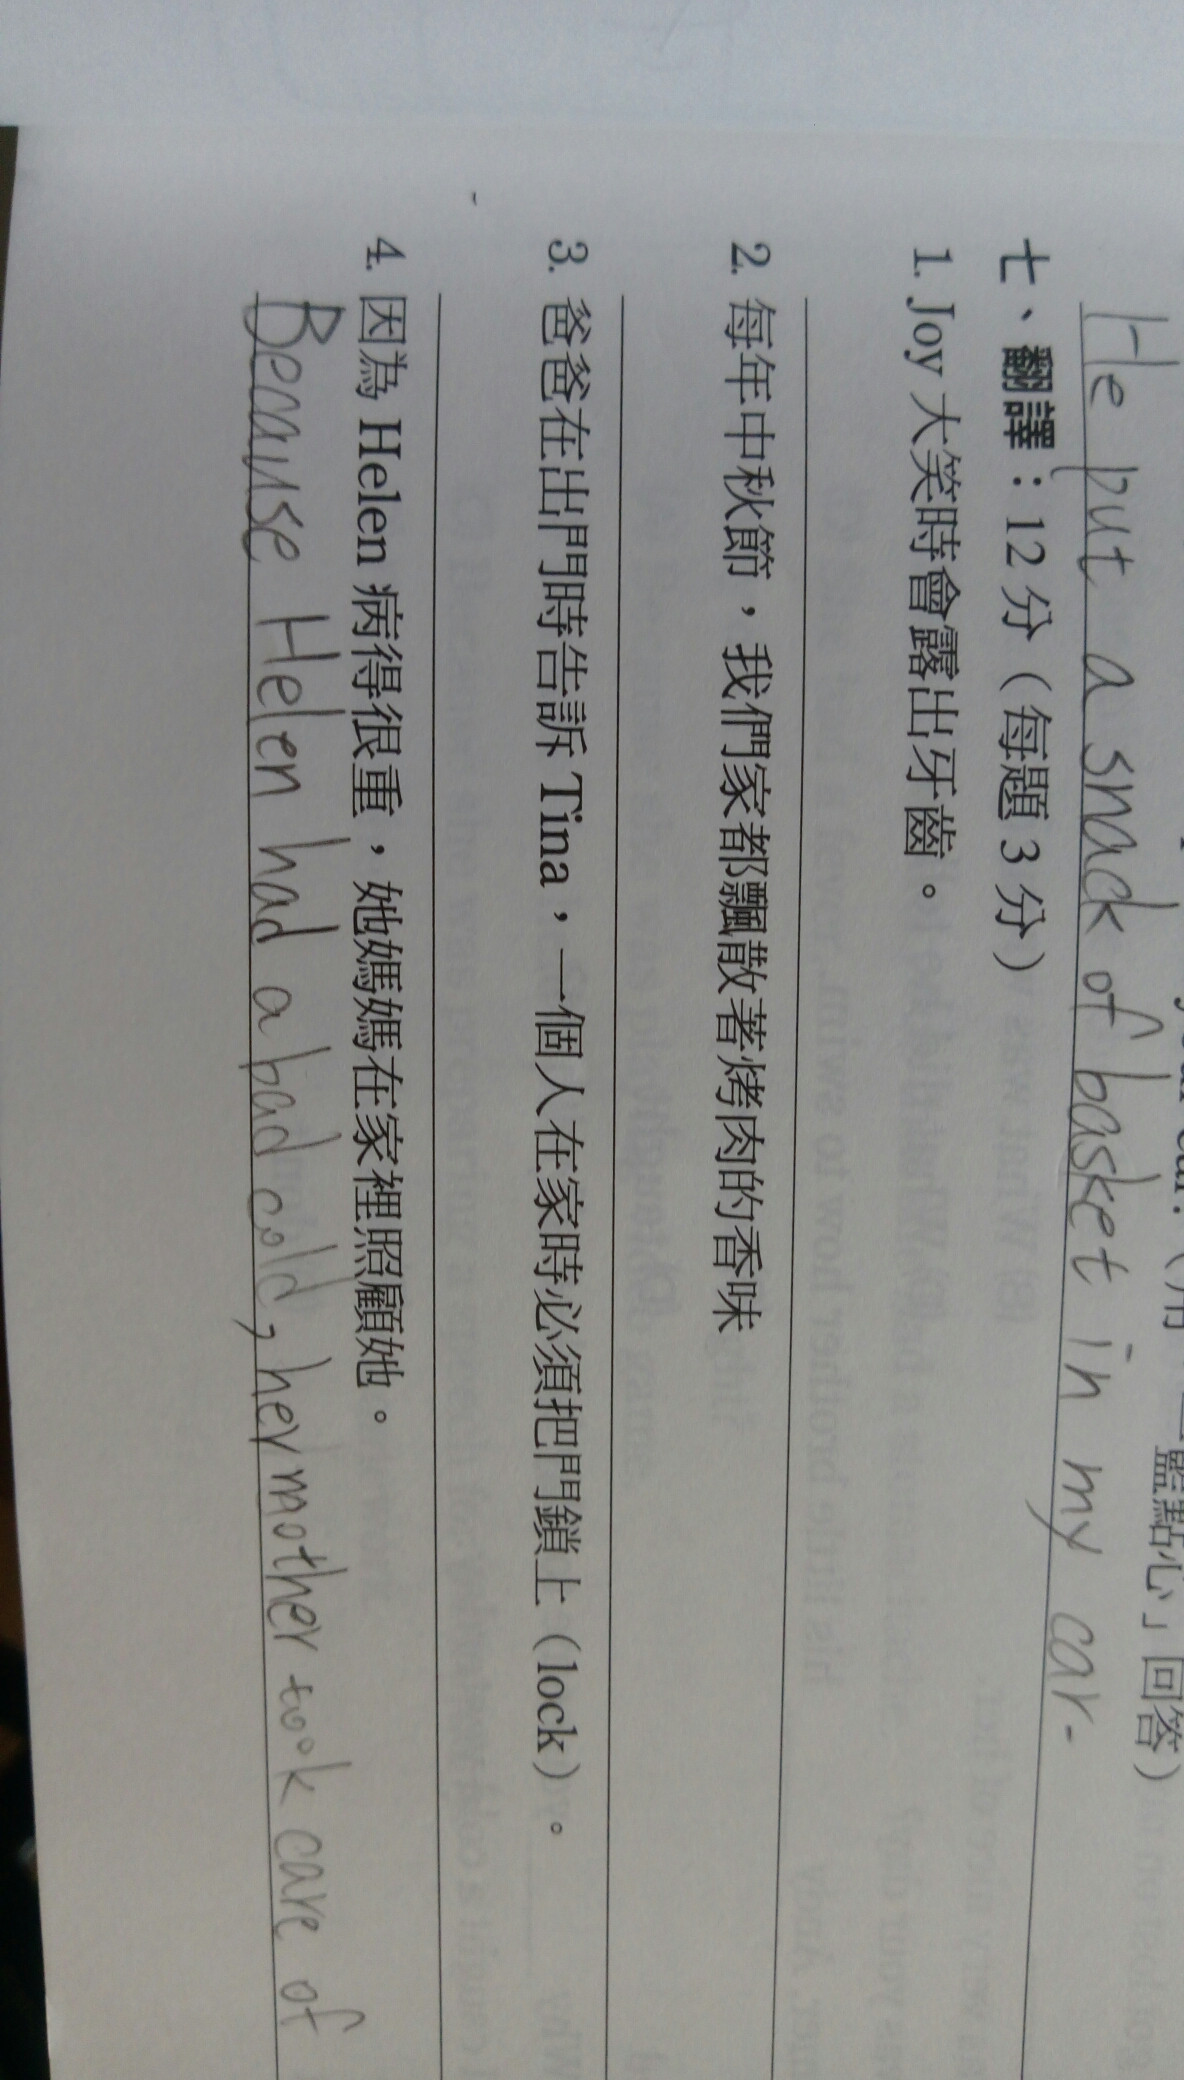 一籃點心」回答)
He put a snack of basket in my car.
七、翻譯：12 分（每題 3 分）
1. Joy 大笑時會露出牙齒。
2. 每年中秋節，我們家都飄散著烤肉的香味
3. 爸爸在出門時告訴 Tina，一個人在家時必須把門鎖上（lock）。
4. 因為 Helen 病得很重，她媽媽在家裡照顧她。
Because Helen had a bad cold, her mother took care of